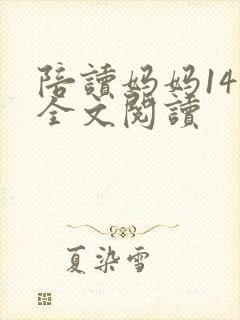 陪讀妈妈14
全文閱讀
夏染雪